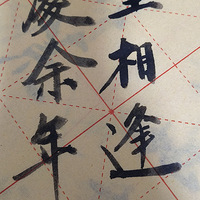 相逢
余年